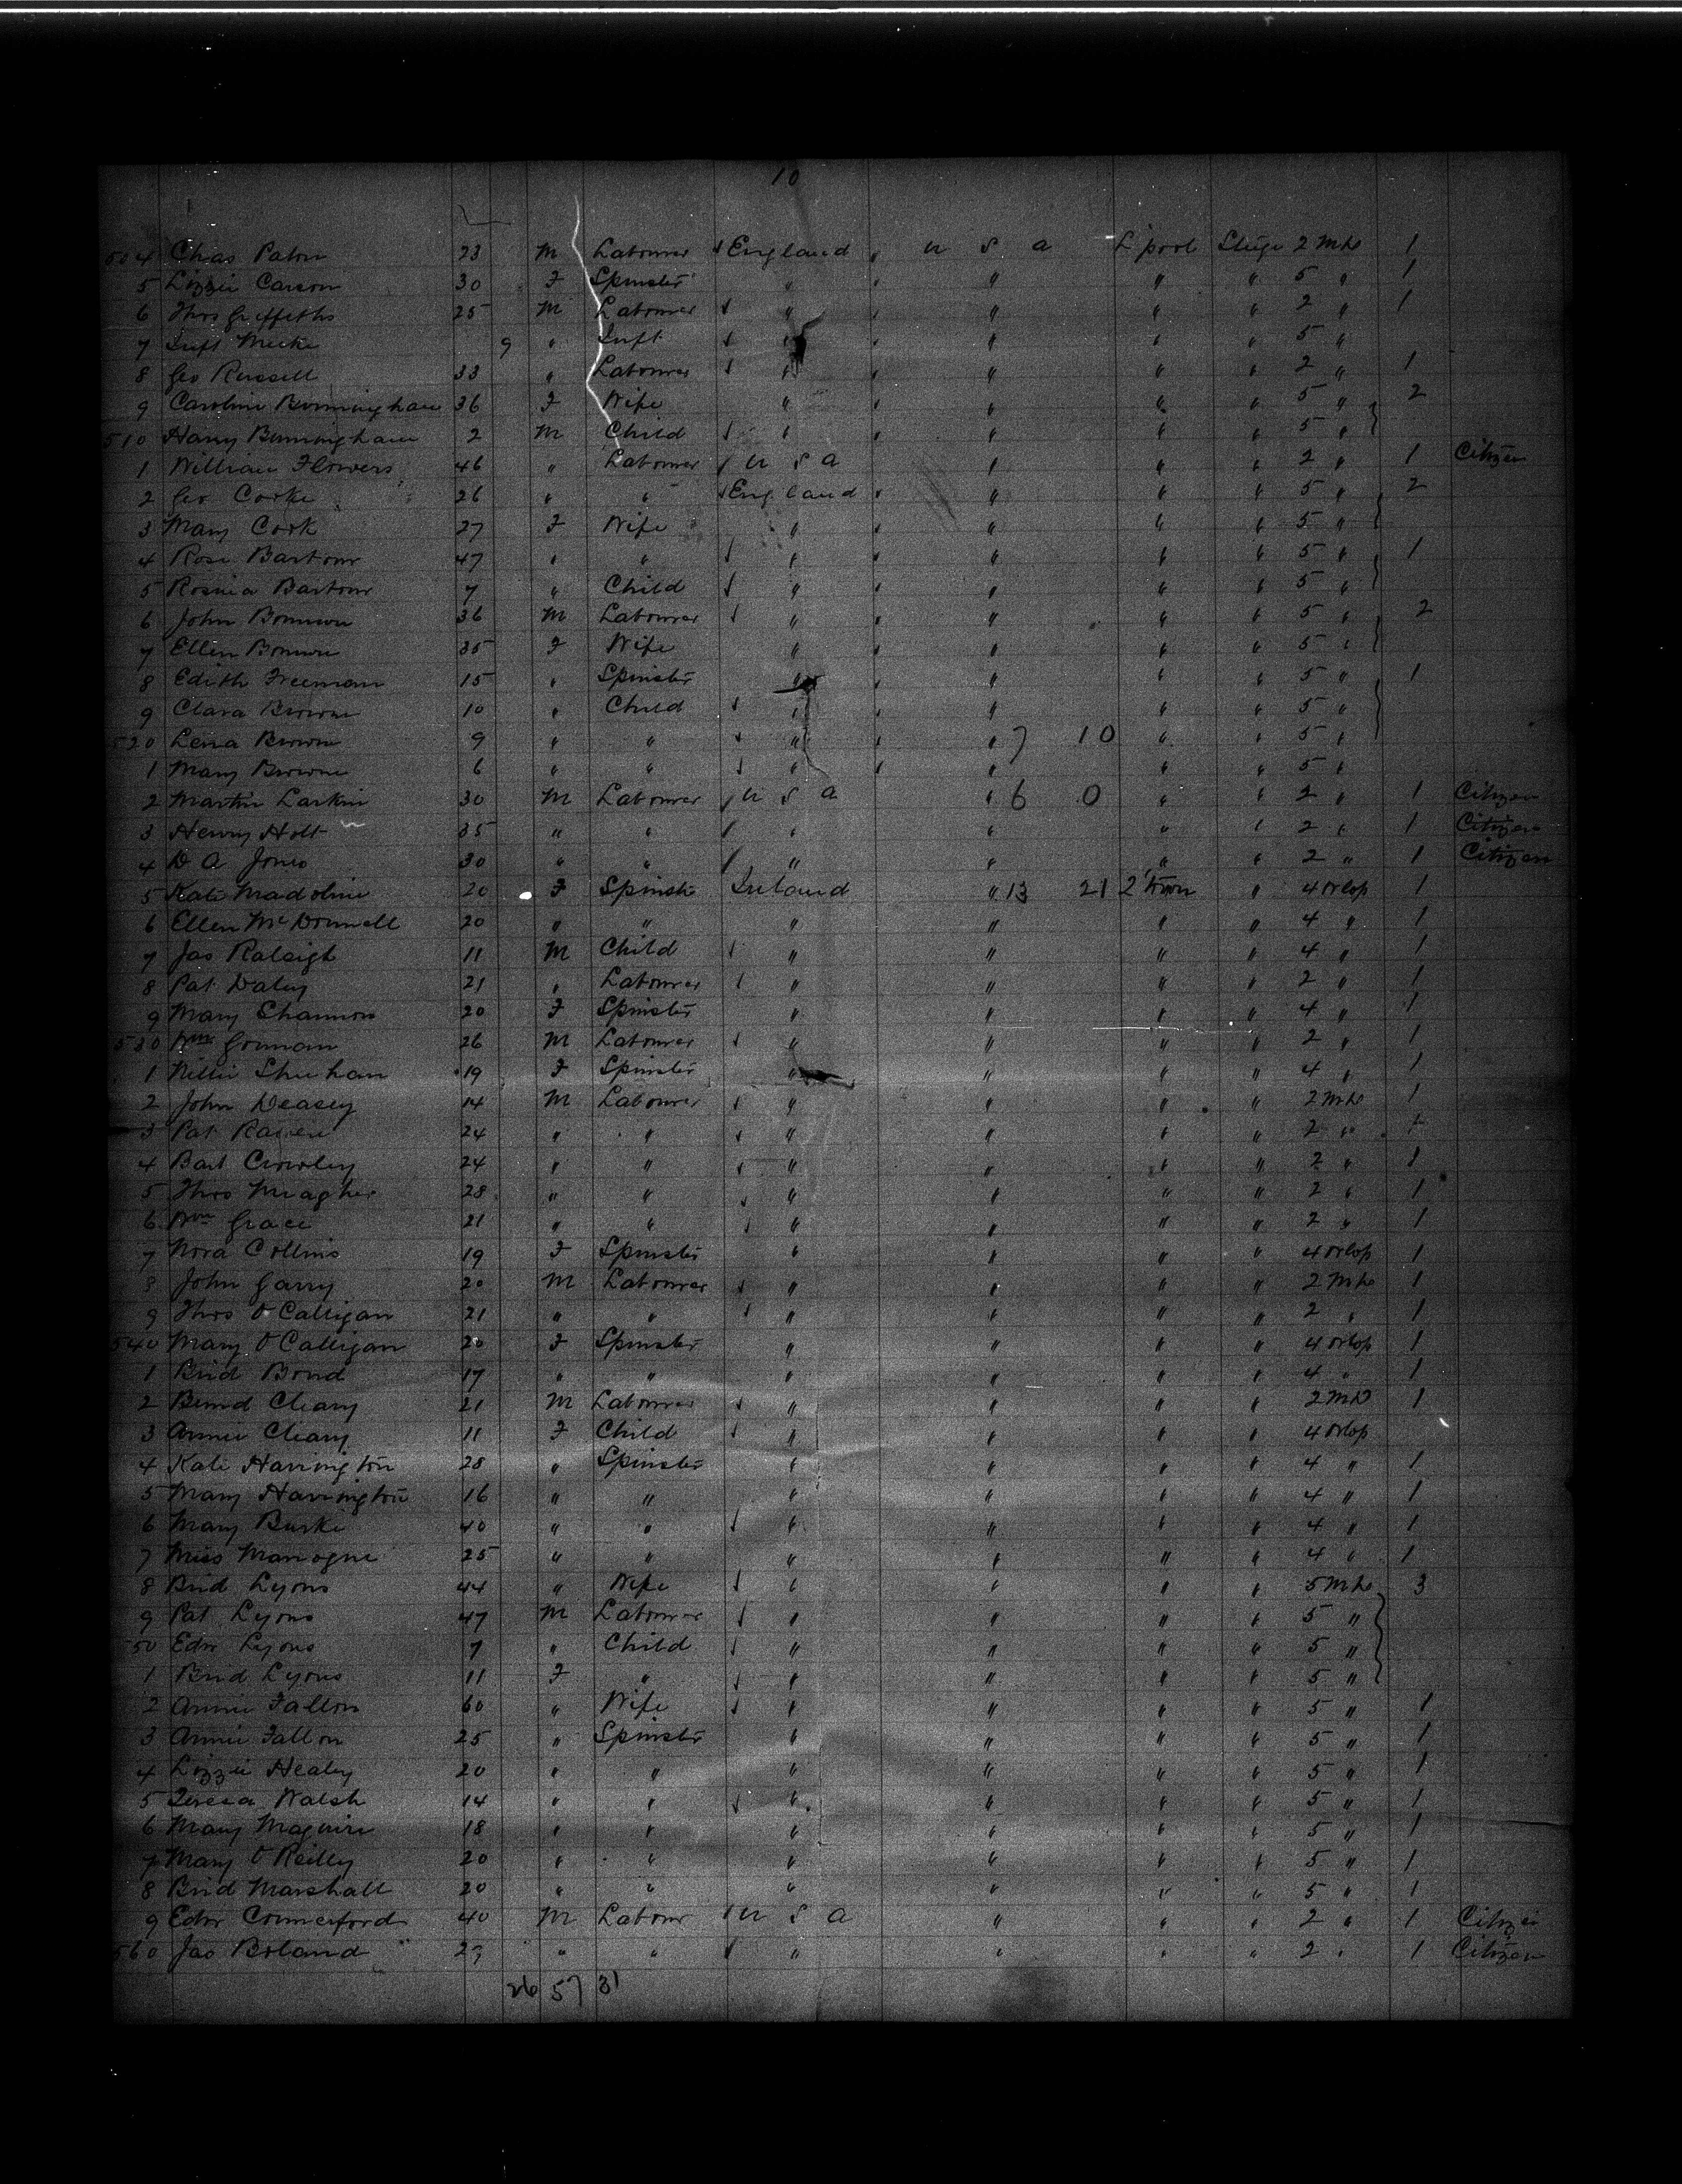 10
504 Chas Paton 23 M Labourer England U S A L'pool Stge 2 Mho 1
5 Lizzie Carson 30 F Spinster " " " " 5 " 1
6 Thos Griffeths 25 M Labourer " " " " 2 " 1
7 Inft Meeke 9 " Inft " " " " 5 "
8 Geo Russell 33 " Labourer " " " " 2 " 1
9 Caroline Bermingham 36 F Wife " " " " 5 " 2
510 Harry Bermingham 2 M Child " " " " 5 "
1 William Flowers 46 " Labourer U S A " " " 2 " 1 Citizen
2 Geo Cooke 26 " " England " " " 5 " 2
3 Mary Cook 27 F Wife " " " " 5 "
4 Rose Barbour 47 " " " " " " 5 " 1
5 Rosina Barbour 7 " Child " " " " 5 "
6 John 36 M Labourer " " " " 5 " 2
7 Ellen 35 F Wife " " " " 5 "
8 Edith Freeman 15 " Spinster " " " " 5 " 1
9 Clara Browne 10 " Child " " " " 5 "
520 Lena Browne 9 " " " " 7 10 " " 5 "
1 Mary Browne 6 " " " " " " 5 "
2 Martin Larkin 30 M Labourer U S A " 6 0 " " 2 " 1 Citizen
3 Henry Holt 35 " " " " " " 2 " 1 Citizen
4 D A Jones 30 " " " " " " 2 " 1 Citizen
5 Kate Madoline 20 F Spinster Ireland " 13 21 2'town " 4 orlop 1
6 Ellen McDonnell 20 " " " " " " 4 " 1
7 Jas Raleigh 11 M Child " " " " 4 " 1
8 Pat Daley 21 " Labourer " " " " 2 " 1
9 Mary Channon 20 F Spinster " " " " 4 " 1
530 Wm Gorman 26 M Labourer " " " " 2 " 1
1 Nellie Sheehan 19 F Spinster " " " " 4 " 1
2 John Deasey 14 M Labourer " " " " 2 Mho 1
3 Pat 24 " " " " " " 2 " 1
4 Bart Crowley 24 " " " " " " 2 " 1
5 Thos Meagher 28 " " " " " " 2 " 1
6 Wm Grace 21 " " " " " " 2 " 1
7 Nora Collins 19 F Spinster " " " " 4 orlop 1
8 John Garry 20 M Labourer " " " " 2 Mho 1
9 Thos O'Calligan 21 " " " " " " 2 " 1
540 Mary O'Calligan 20 F Spinster " " " " 4 orlop 1
1 Brid Bond 17 " " " " " " 4 " 1
2 Bernd Cleary 21 M Labourer " " " " 2 Mho 1
3 Annie Cleary 11 F Child " " " " 4 orlop
4 Kate Harrington 28 " Spinster " " " " 4 " 1
5 Mary Harrington 16 " " " " " " 4 " 1
6 Mary Burke 40 " " " " " " 4 " 1
7 Miss Manogue 25 " " " " " " 4 " 1
8 Brid Lyons 44 " Wife " " " " 5 Mho 3
9 Pat Lyons 47 M Labourer " " " " 5 "
50 Edw Lyons 7 " Child " " " " 5 "
1 Brid Lyons 11 F " " " " " 5 "
2 Annie Fallon 60 " Wife " " " " 5 " 1
3 Annie Fallon 25 " Spinster " " " " 5 " 1
4 Lizzie Healey 20 " " " " " " 5 " 1
5 Teresa Walsh 14 " " " " " " 5 " 1
6 Mary Maguire 18 " " " " " " 5 " 1
7 Mary O'Reilly 20 " " " " " " 5 " 1
8 Brid Marshall 20 " " " " " " 5 " 1
9 Edw Commerford 40 M Labour U S A " " " 2 " 1 Citizen
560 Jas Boland 27 " " " " " " 2 " 1 Citizen
26 57 31